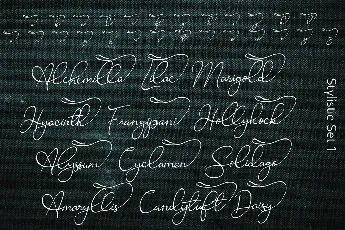 Alchemilla Lilac Marigold
Hyacinth Frangipani Hollyhock
Alyssum Cyclamen Solidago
Amaryllis Candytuft Daisy
Stylistic Set 1